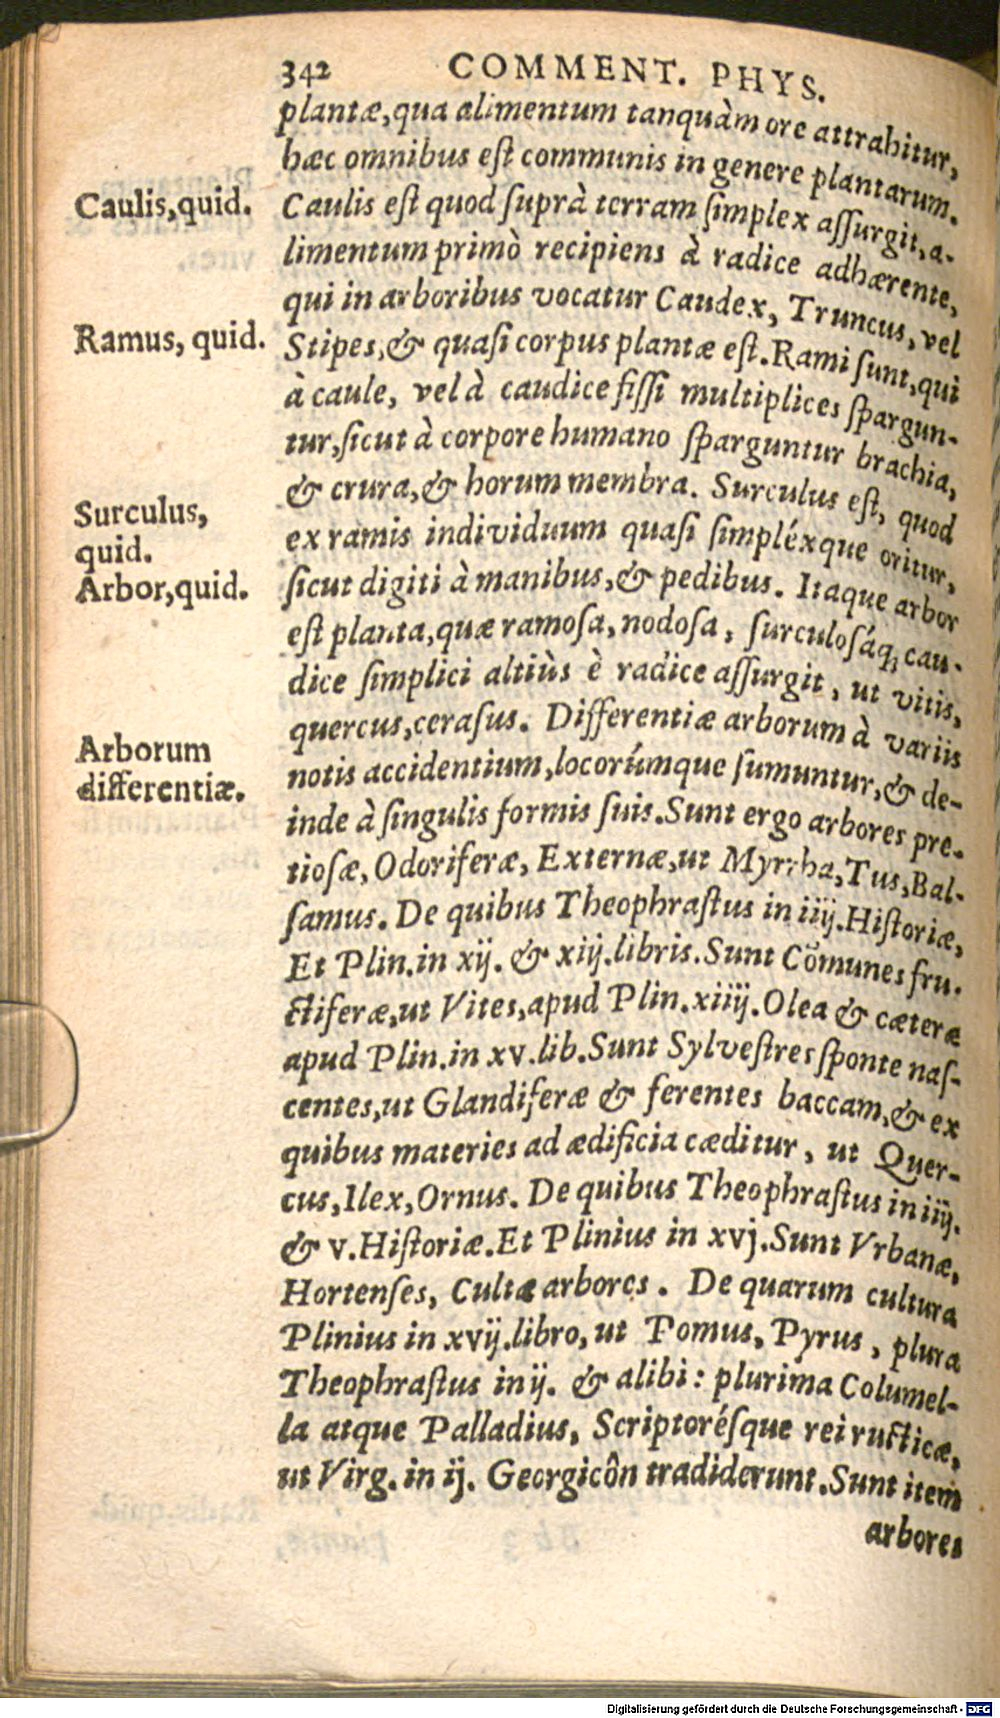 342 COMMENT. PHYS.
plantæ, qua alimentum tanquàm ore attrahitur,
hæc omnibus eſt communis in genere plantarum.
Caulis, quid.
Caulis eſt quod ſuprà terram ſimplex aſſurgit, a-
limentum primò recipiens à radice adhærente,
qui in arboribus vocatur Caudex, Truncus, vel
Ramus, quid.
Stipes, & quaſi corpus plantæ eſt. Rami ſunt, qui
à caule, vel à caudice fiſſi multiplices ſpargun-
tur, ſicut à corpore humano ſparguntur brachia,
& crura, & horum membra. Surculus eſt, quod
Surculus,
quid.
ex ramis individuum quaſi ſimpléxque oritur,
ſicut digiti à manibus, & pedibus. Itaque arbor
Arbor, quid.
eſt planta, quæ ramoſa, nodoſa, ſurculoſáq; cau-
dice ſimplici altiùs è radice aſſurgit, ut vitis,
quercus, ceraſus. Differentiæ arborum à variis
Arborum
differentiæ.
notis accidentium, locorúmque ſumuntur, & de-
inde à ſingulis formis ſuis. Sunt ergo arbores pre-
tioſæ, Odoriferæ, Externæ, ut Myrrha, Tus, Bal-
ſamus. De quibus Theophraſtus in iiij. Hiſtoriæ,
Et Plin. in xij. & xiij. libris. Sunt Cõmunes fru-
ctiferæ, ut Vites, apud Plin. xiiij. Olea & cæteræ
apud Plin. in xv. lib. Sunt Sylveſtres ſponte naſ-
centes, ut Glandiferæ & ferentes baccam, & ex
quibus materies ad ædificia cæditur, ut Quer-
cus, Ilex, Ornus. De quibus Theophraſtus in iij.
& v. Hiſtoriæ. Et Plinius in xvj. Sunt Vrbanæ,
Hortenſes, Cultæ arbores. De quarum cultura
Plinius in xvij. libro, ut Pomus, Pyrus, plura
Theophraſtus in ij. & alibi: plurima Columel-
la atque Palladius, Scriptoréſque rei ructicæ,
ut Virg. in ij. Georgicôn tradiderunt. Sunt item
arbores
Digitalisierung gefördert durch die Deutsche Forschungsgemeinschaft - DFG